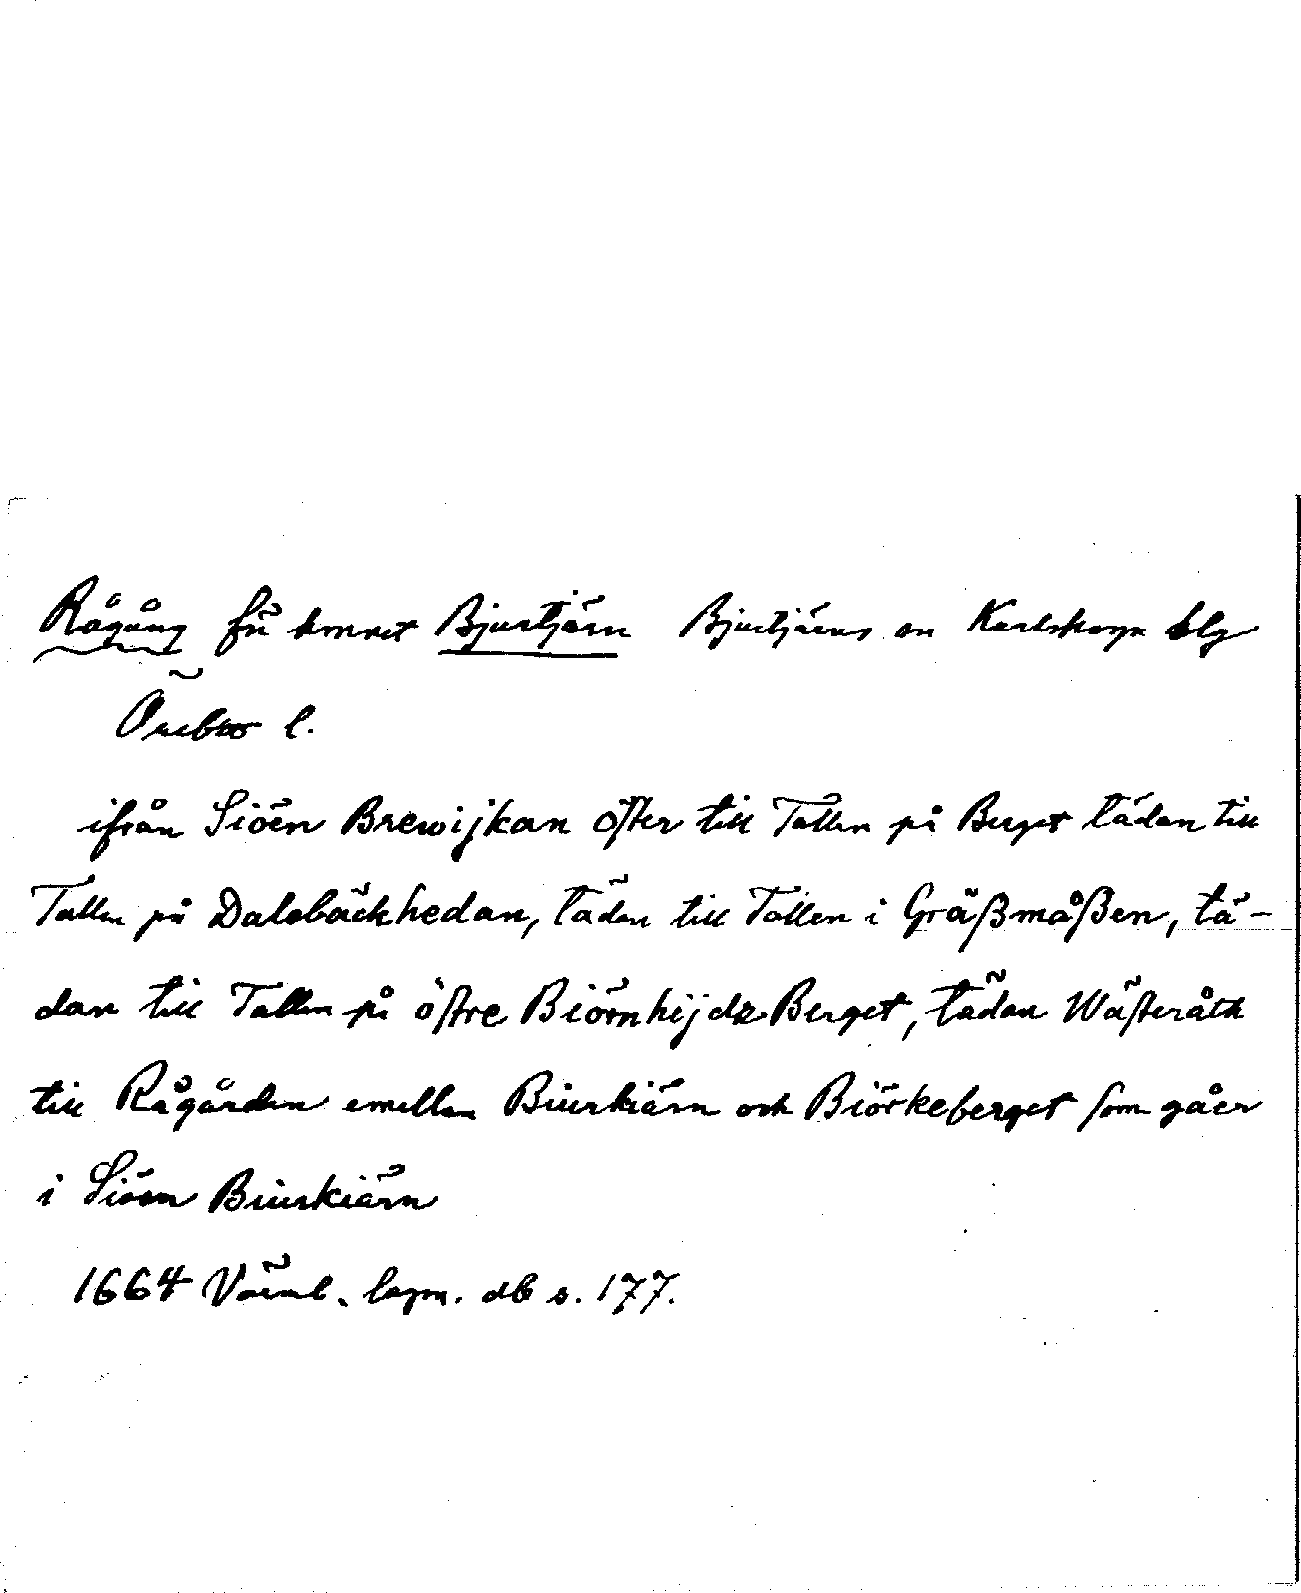 Rågång för hmnet Bjurtjärn Bjurtjärns sn Karlskoga blg
Örebro l.
ifrån Siöen Brewijkan öster till Tallen på Berget tädan till
Tallen på Dalsbäckhedan, tädan till Tallen i Gräßmåßen, tä-
dan till Tallen på östre Biörnhijdz Berget, tädan Wästeråth
till Rågården emellan Biurkiärn och Biörkeberget som gåer
i Siöen Biurkiärn
1664 Värml. lagm. db s. 177.